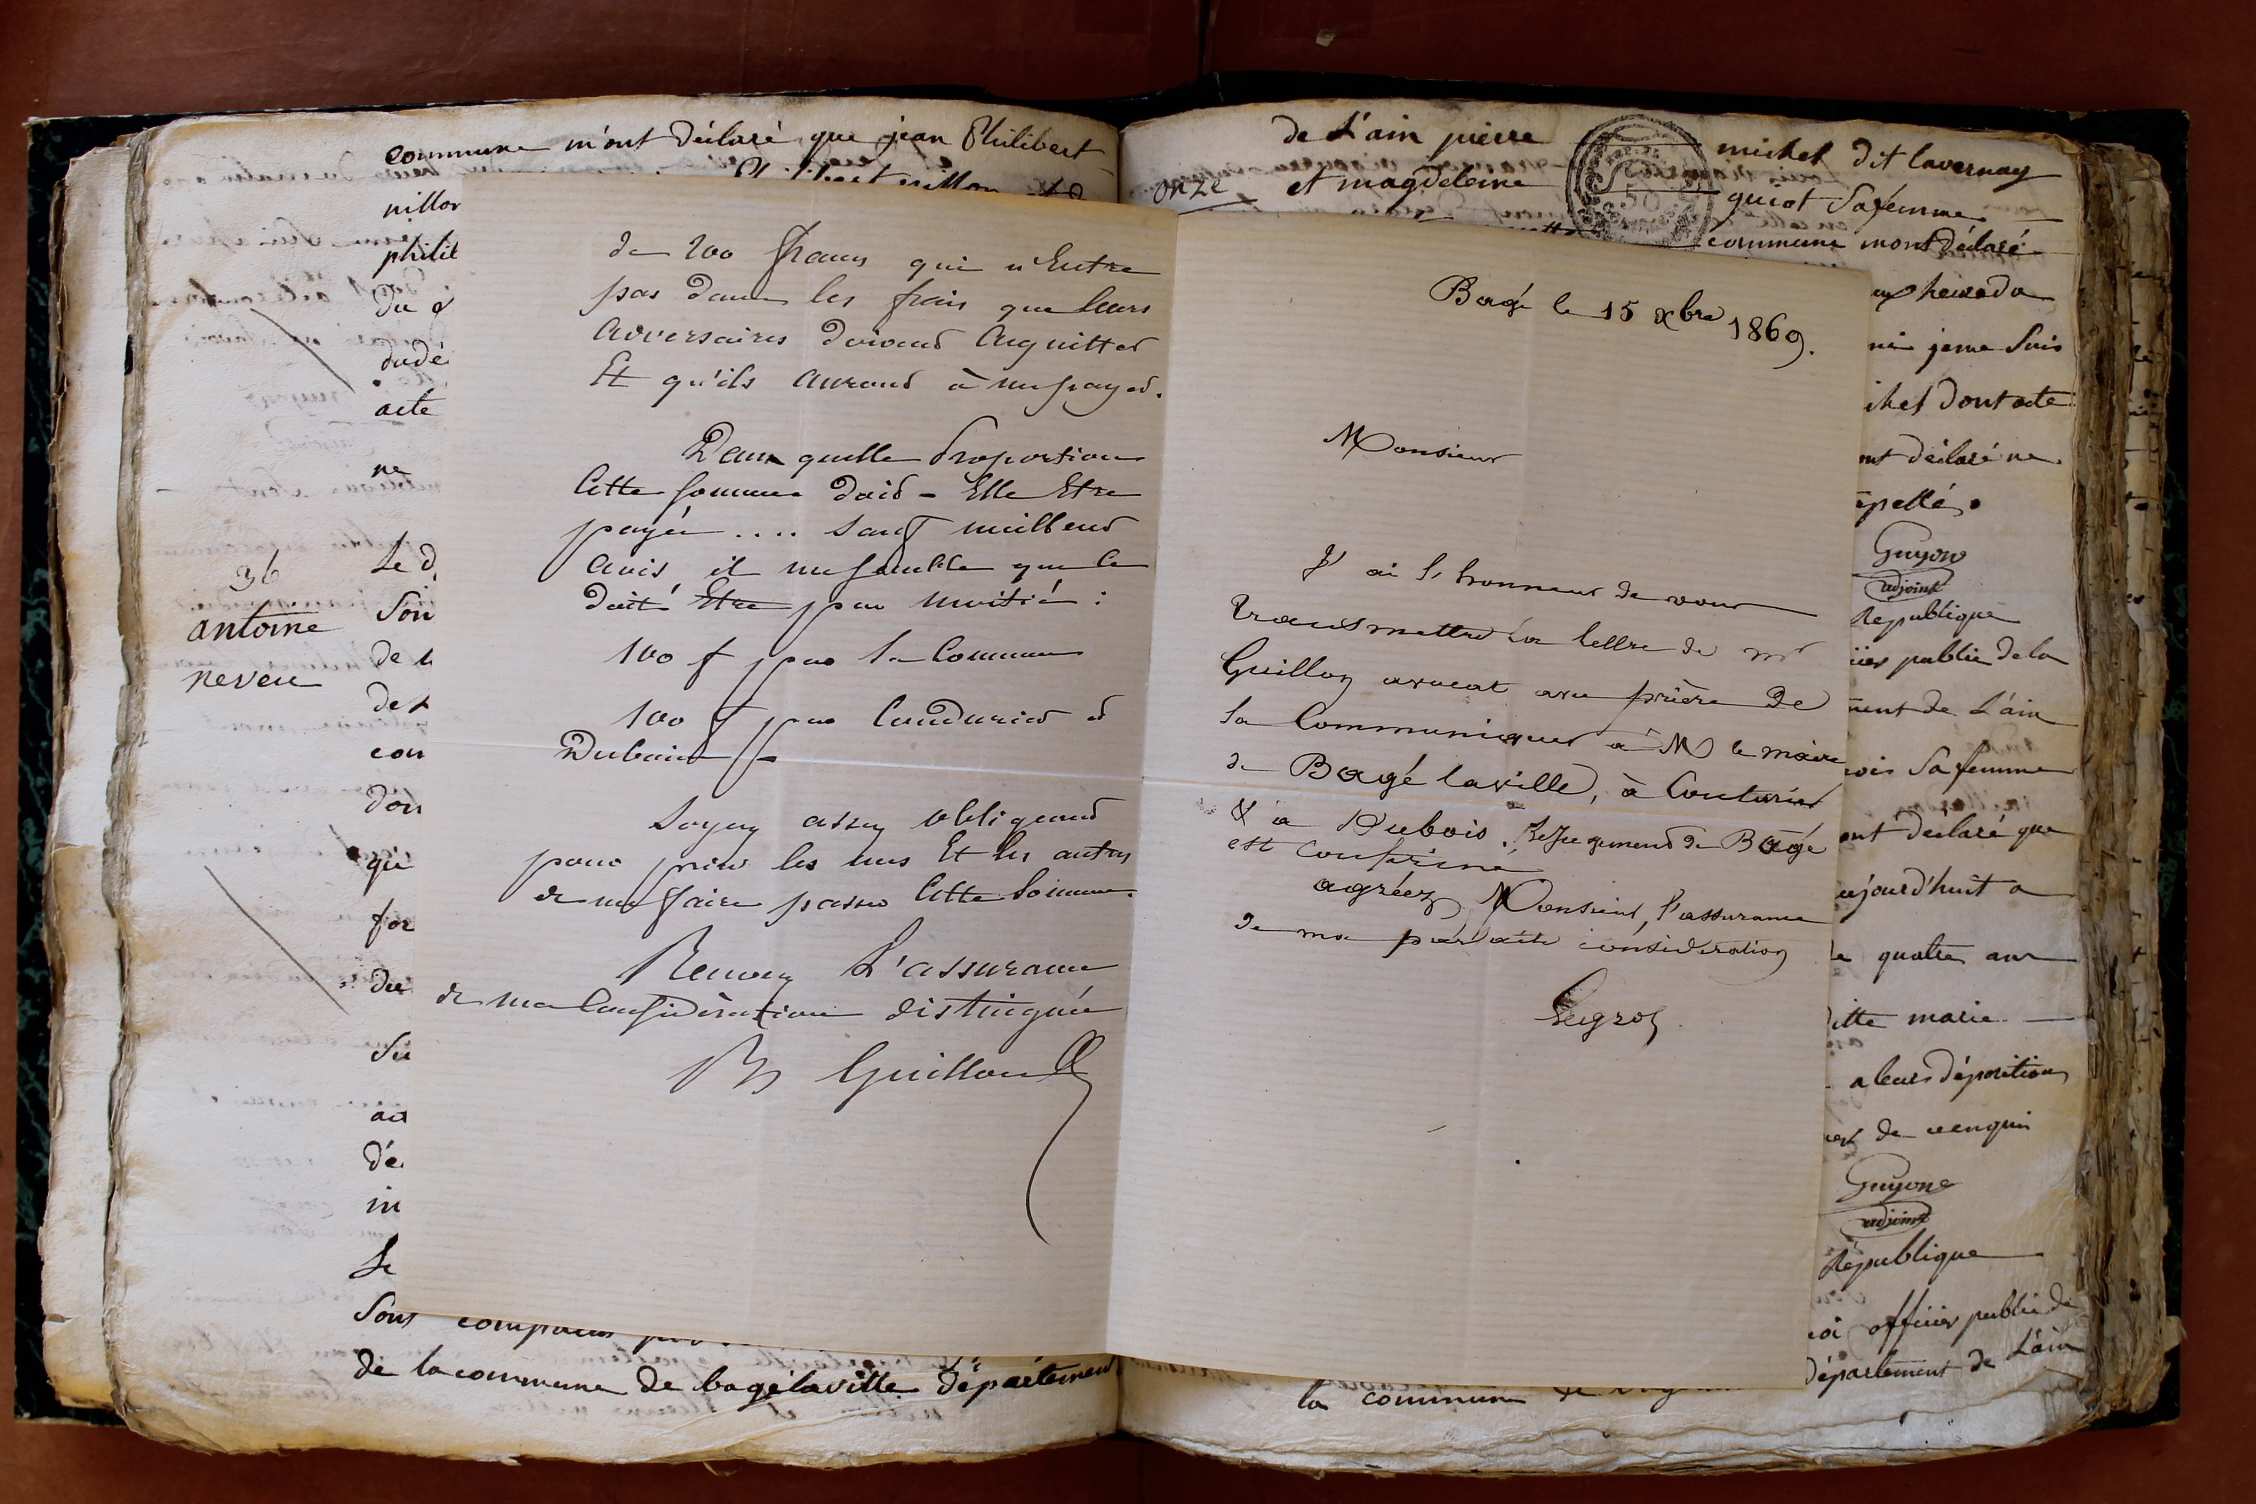 commune m'ont déclaré que jean Philibert
nillon
philib
du d
dudé
acte
ne
36
antoine
neveu
Le d
Son
de
de
con
don
qu
for
du
Su
au
dé
in
Le
Sont comparus
de la commune de bagélaville département
de 200 francs qui n'Entre
pas dans les frais que leurs
adversaires doivent acquitter
Et qu'ils auront à me payer.
Dans quelle Proportion
Cette somme doit-Elle Etre
payée .... sauf meilleur
avis, il me semble que ce
doit Etre par moitié :
100 f par la Commune
100 f par Coudurier et
Dubois
Soyez assez obligeant
pour prier les uns Et les autres
de me faire passer Cette Somme.
Recevez L'assurance
de ma Considération distinguée
Guillon
de L'ain pierre michel dit lavernay
onze et magdeleine guiot Sa femme
commune mont déclaré
heure du
je me Suis
ichel dont acte
ont déclaré ne
apellé.
Guyon
adjoint
Republique
cier public de la
ment de L'ain
Sa femme
ont déclaré que
aujourd'huit a
quatre ans
ditte marie
a leurs déposition
de
Guyon
adjoint
République
officier public de
département de L'ain
la commune
Bagé le 15 xbre 1869.
Monsieur
J'ai l'honneur de vous
transmettre la lettre de Mr
Guillon avocat avec prière de
la Communiquer à M le maire
de Bagé la ville, à Couturier
& à Dubois. Le jugement de Bagé
est confirmé
agréez, Monsieur, l'assurance
de ma parfaite considération
Legros